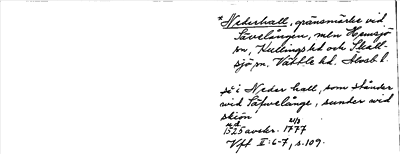 *Nederhall, gränsmärke vid
Sävelången, mln Hemsjö
sn, Kullings hd och Skall-
sjö sn, Vättle hd. Älvsb. l.
i Neder hall, som stånder
wid Säfwelånge, sunder wid
skiön
1525 avskr. 1777 21/3
Vfl II:6-7, s. 109.